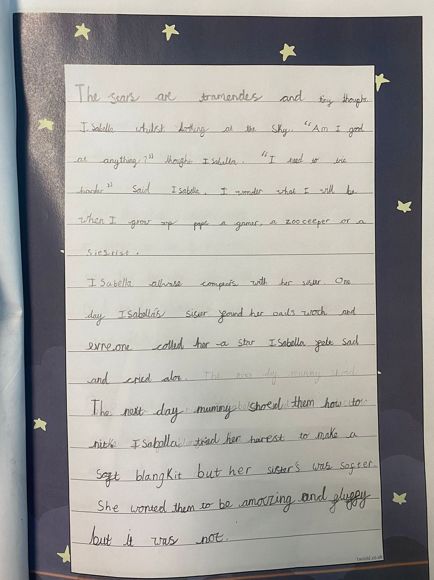 The sears are tramendes and tiny thought
ISabella whilst looking at the Sky. "Am I good
at anything?" thought ISabella. "I need to trie
harder" Said ISabella. I wonder what I will be
when I grow up a gamer, a zooceeper or a
Sientise.
ISabella allwase compears with her sister One
day ISabella's sister found her dad's woch and
evreone called her a star ISabella felt Sad
and cried alot.
The next day mummy showed them how to
nitt ISabella tried her harest to make a
Soft blangkit but her sister's was softer.
She wonted them to be amaizing and fluffy
but it was not.
twinkl.co.uk